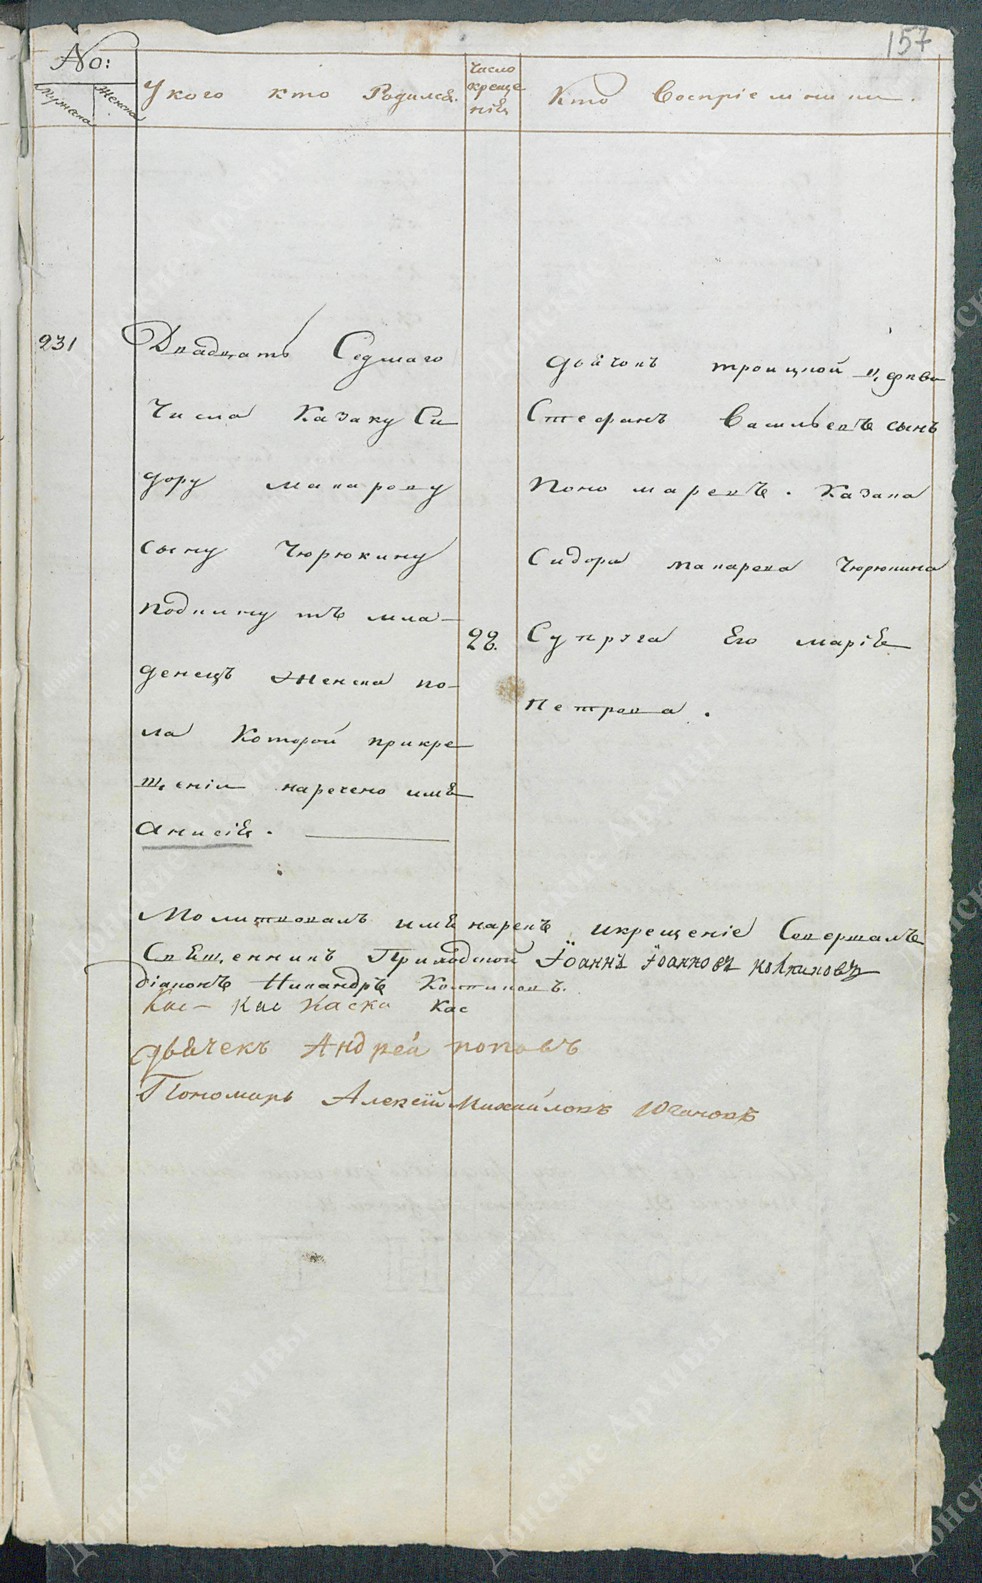 157
No:
Мужеска
Женска
У кого кто Родился.
Число
креще
нія
Кто Восприемники.
231
Двадцать Седмаго
Числа Казаку Си
дору Макарову
сыну Чюрюкину
Подкину тъ мла-
денецъ женска по-
ла Которой прикре
щеніи наречено имя
Анисія.
28.
Дьячокъ троицкой церкви
Стефанъ Васильевъ сынъ
Пономаревъ. Казака
Сидора Макарова Чюрюкина
Супруга Его марія
Петрова.
Молитвовалъ имя нарекъ икрещеніе Совершалъ
Священникъ Приходской Іоаннъ Іоанновъ
діаконъ Никандръ
Кас Каска Кас
дьячекъ Андрей поповъ
Пономарь Алексій Михайловъ Югановъ
Донские Архивы